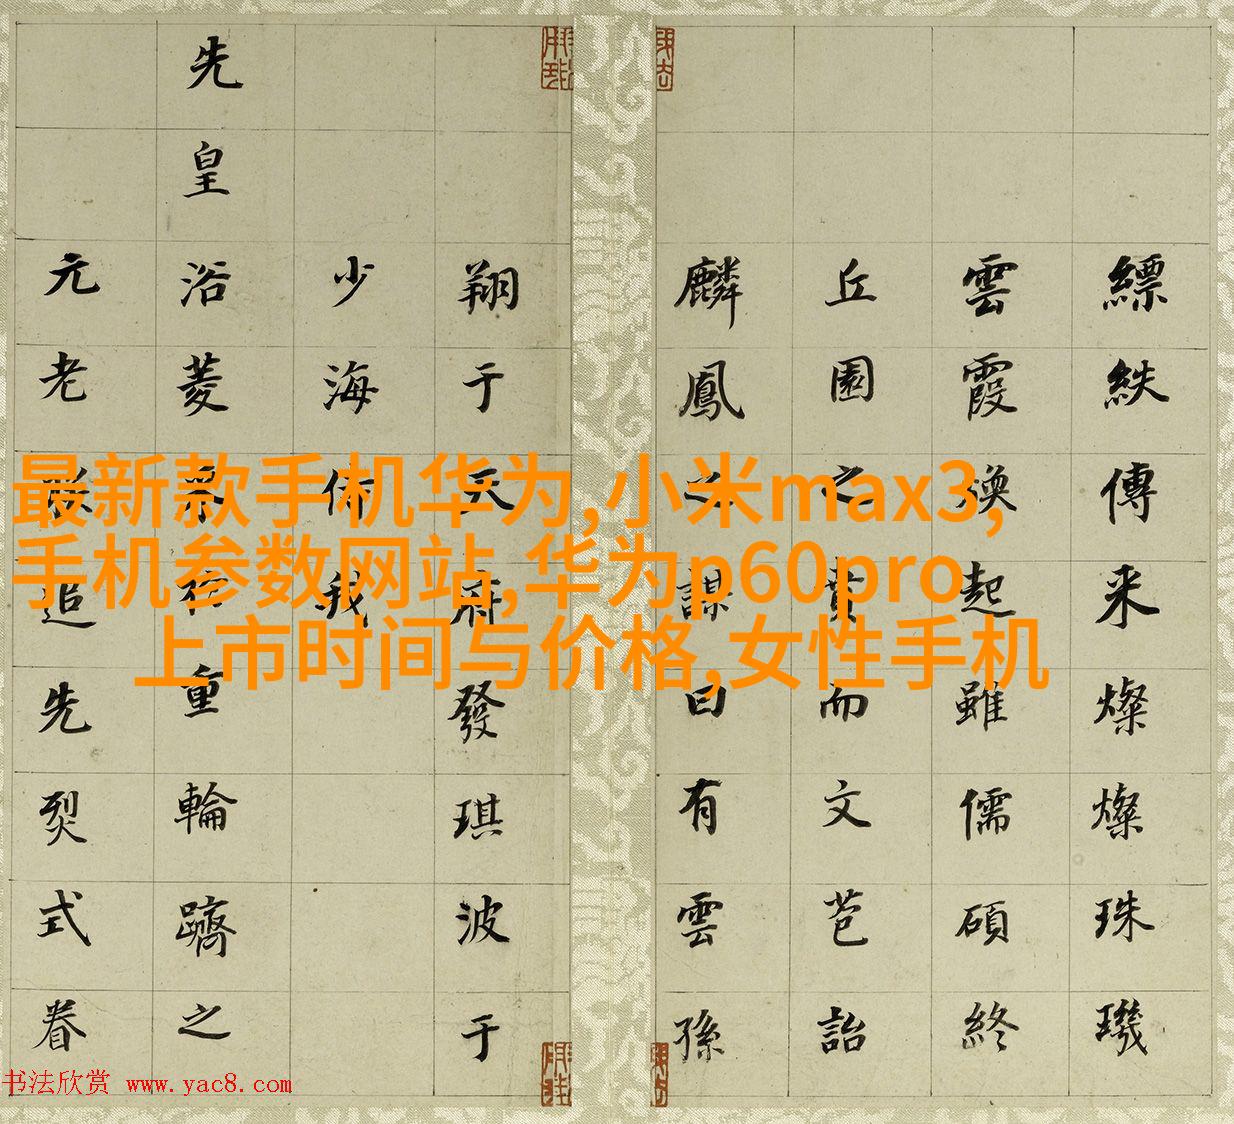 縹紩傳来燦燦珠璣
雲霞煥起雖儒碩終
丘園之賁而文芭詒
麟鳳之謀曰有雲孫
翔于天府發琪波于
少海侍我
先皇浴菱重輪躋之
元老追先烈式眷
最新款手机华为,小米max3,
手机参数网站,华为p60pro
上市时间与价格,女性手机
书法欣赏 www.yac8.com